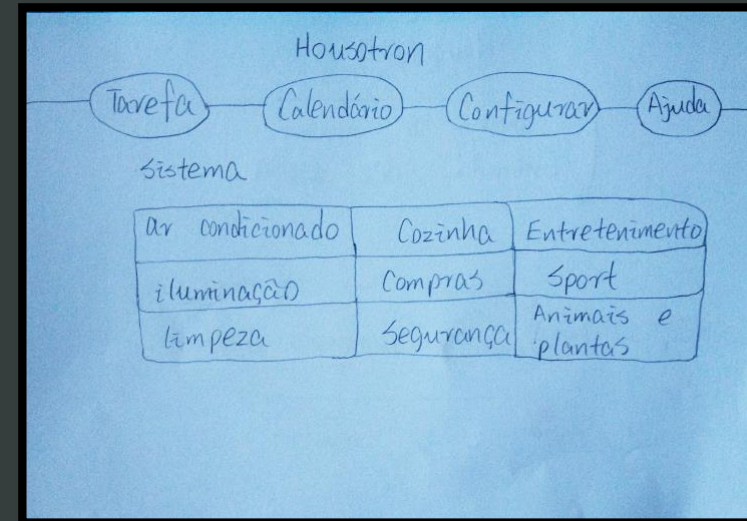 Housotron
Tarefa Calendário Configurar Ajuda
Sistema
ar condicionado Cozinha Entretenimento
iluminação Compras Sport
limpeza Segurança Animais e plantas